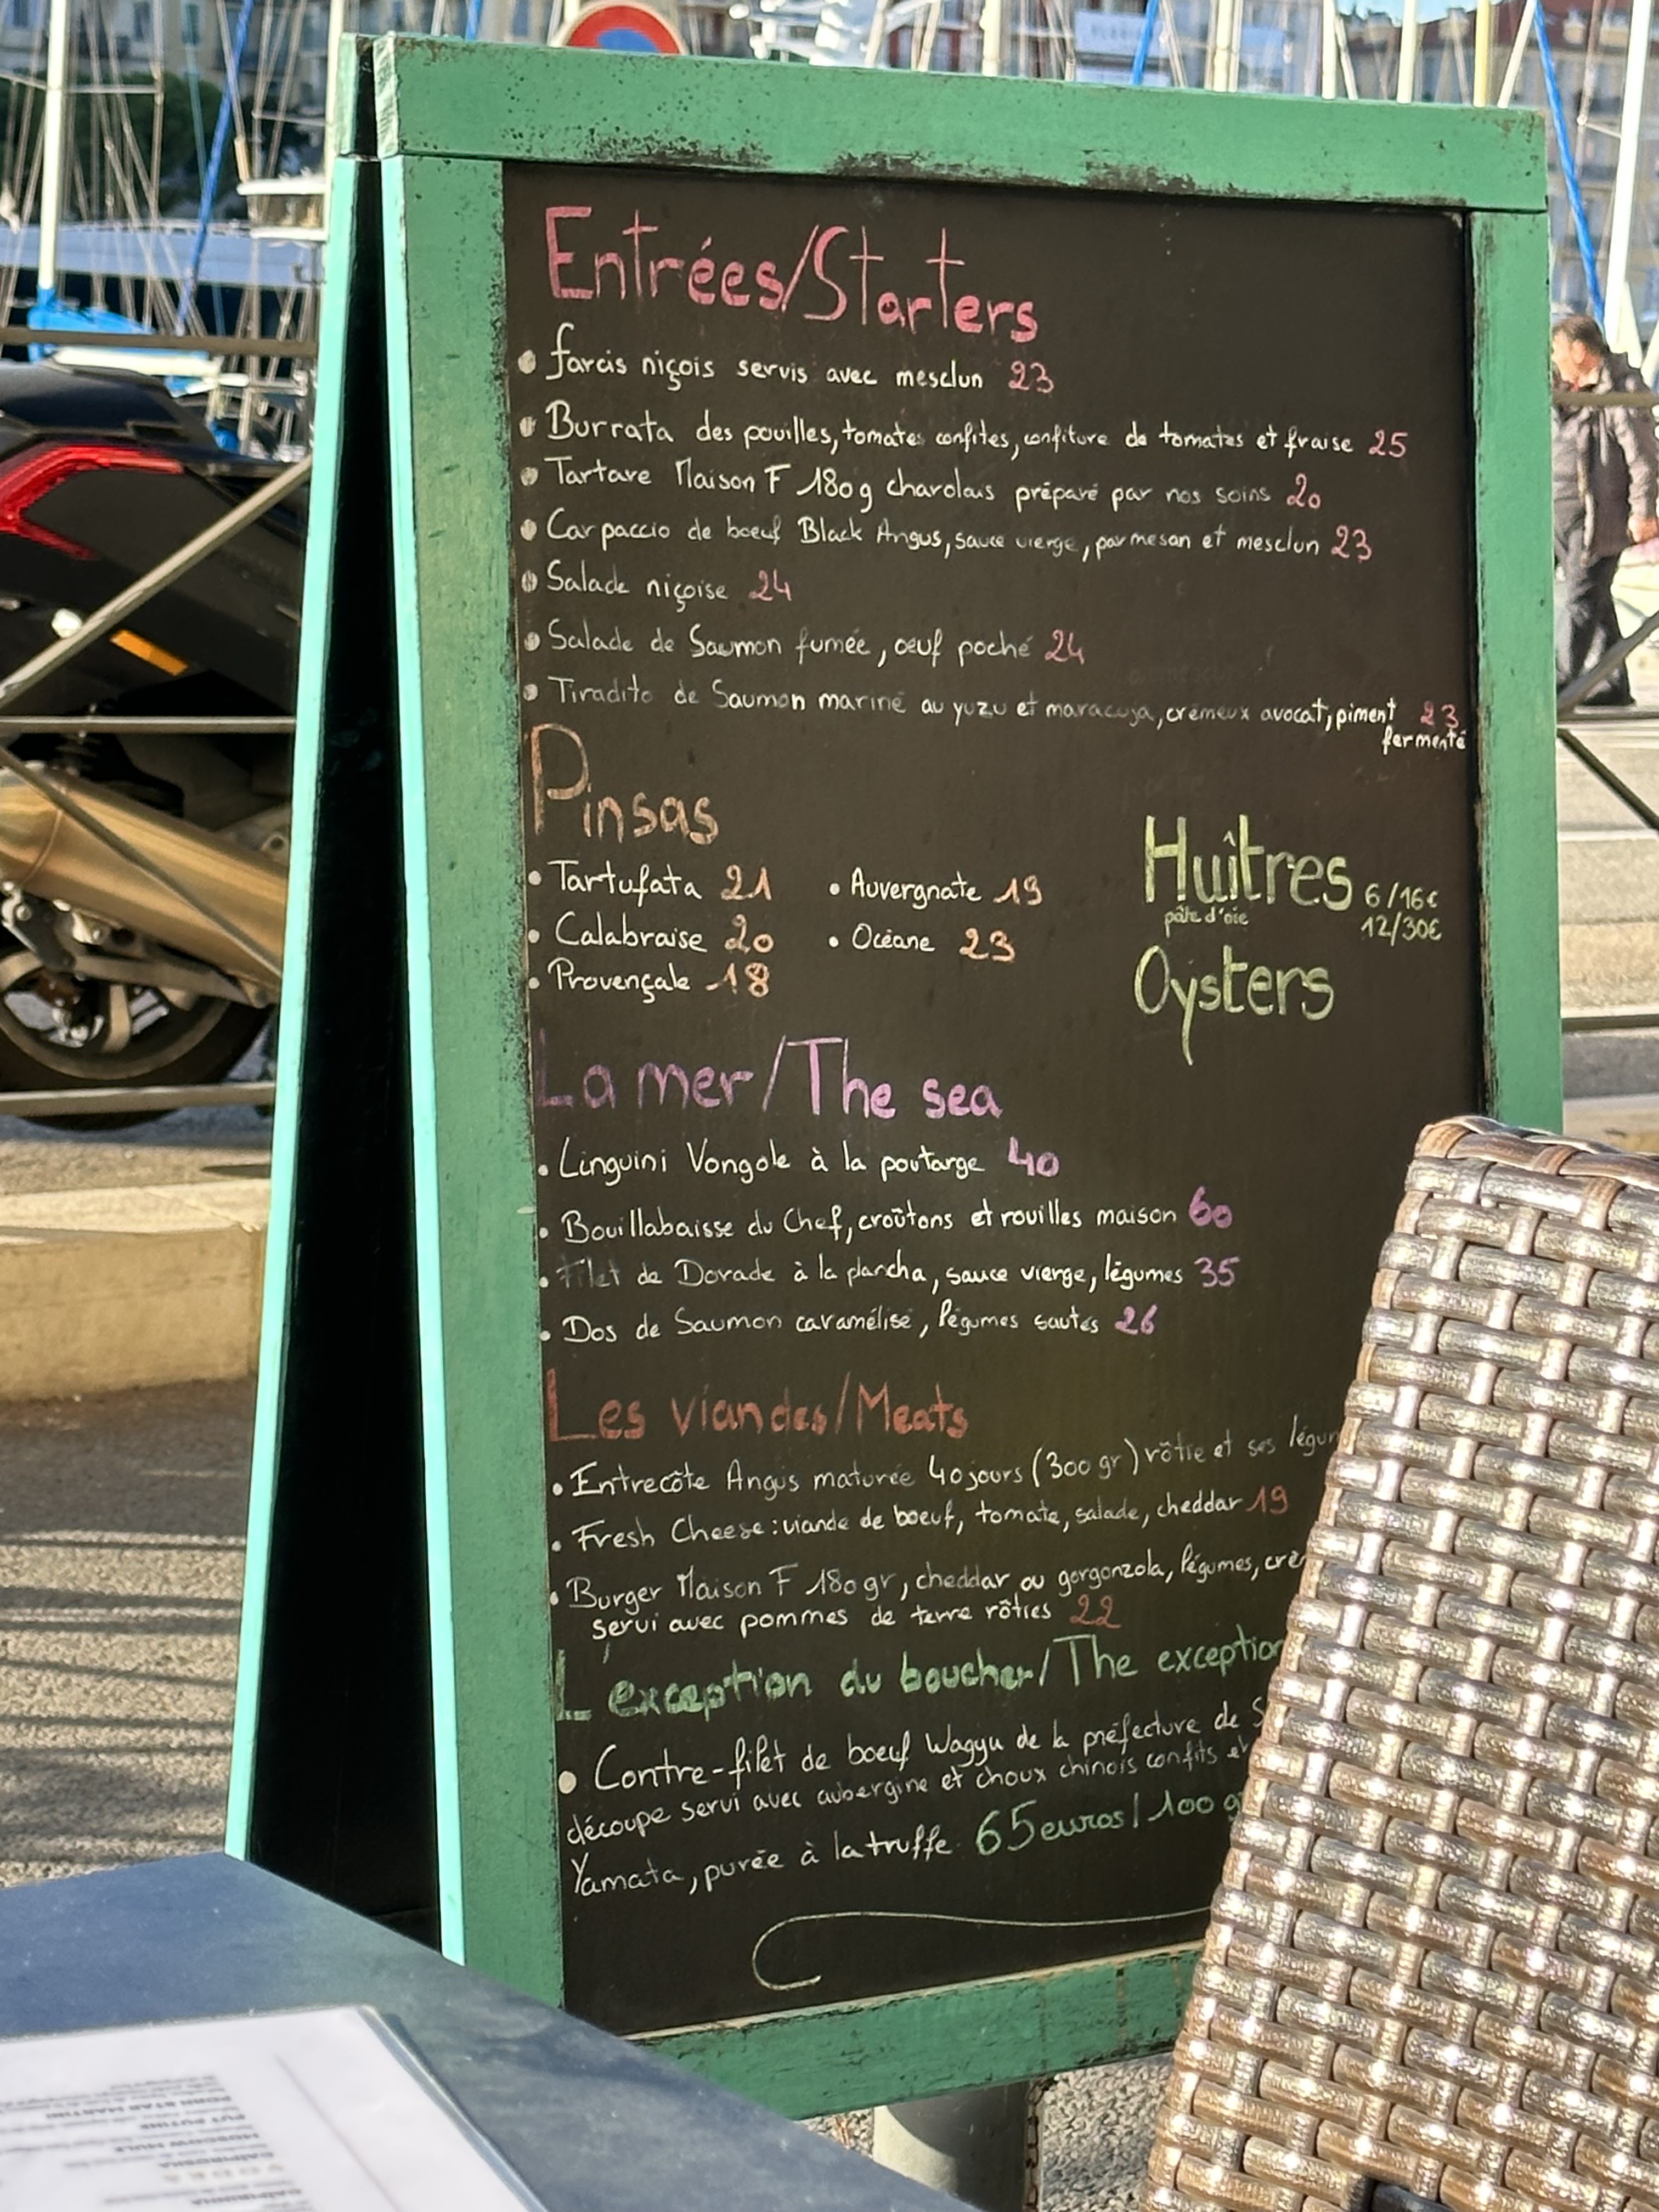 Entrées/Starters
• farcis niçois servis avec mesclun 23
• Burrata des pouilles, tomates confites, confiture de tomates et fraise 25
• Tartare Maison F 180g charolais préparé par nos soins 20
• Carpaccio de boeuf Black Angus, sauce vierge, parmesan et mesclun 23
• Salade niçoise 24
• Salade de Saumon fumée, oeuf poché 24
• Tiradito de Saumon mariné au yuzu et maracuja, crémeux avocat, piment 23
fermenté
Pinsas
• Tartufata 21
• Calabraise 20
• Provençale 18
• Auvergnate 19
• Océane 23
Huîtres 6/16€
pâte d'oie 12/30€
Oysters
La mer/The sea
• Linguini Vongole à la poutarge 40
• Bouillabaisse du Chef, croûtons et rouilles maison 60
• Filet de Dorade à la plancha, sauce vierge, légumes 35
• Dos de Saumon caramélisé, légumes sautés 26
Les viandes/Meats
• Entrecôte Angus maturée 40 jours (300 gr) rôtie et ses légum
• Fresh Cheese: viande de boeuf, tomate, salade, cheddar 19
• Burger Maison F 180gr, cheddar ou gorgonzola, légumes, crè
servi avec pommes de terre rôties 22
L'exception du boucher/The exception
• Contre-filet de boeuf Wagyu de la préfecture de S
découpe servi avec aubergine et choux chinois confits et
Yamata, purée à la truffe 65euros/100 g
PORN STAR MARTINI
MOSCOW MULE
CAÏPIROSKA
VODKA
CAÏPIRINHA